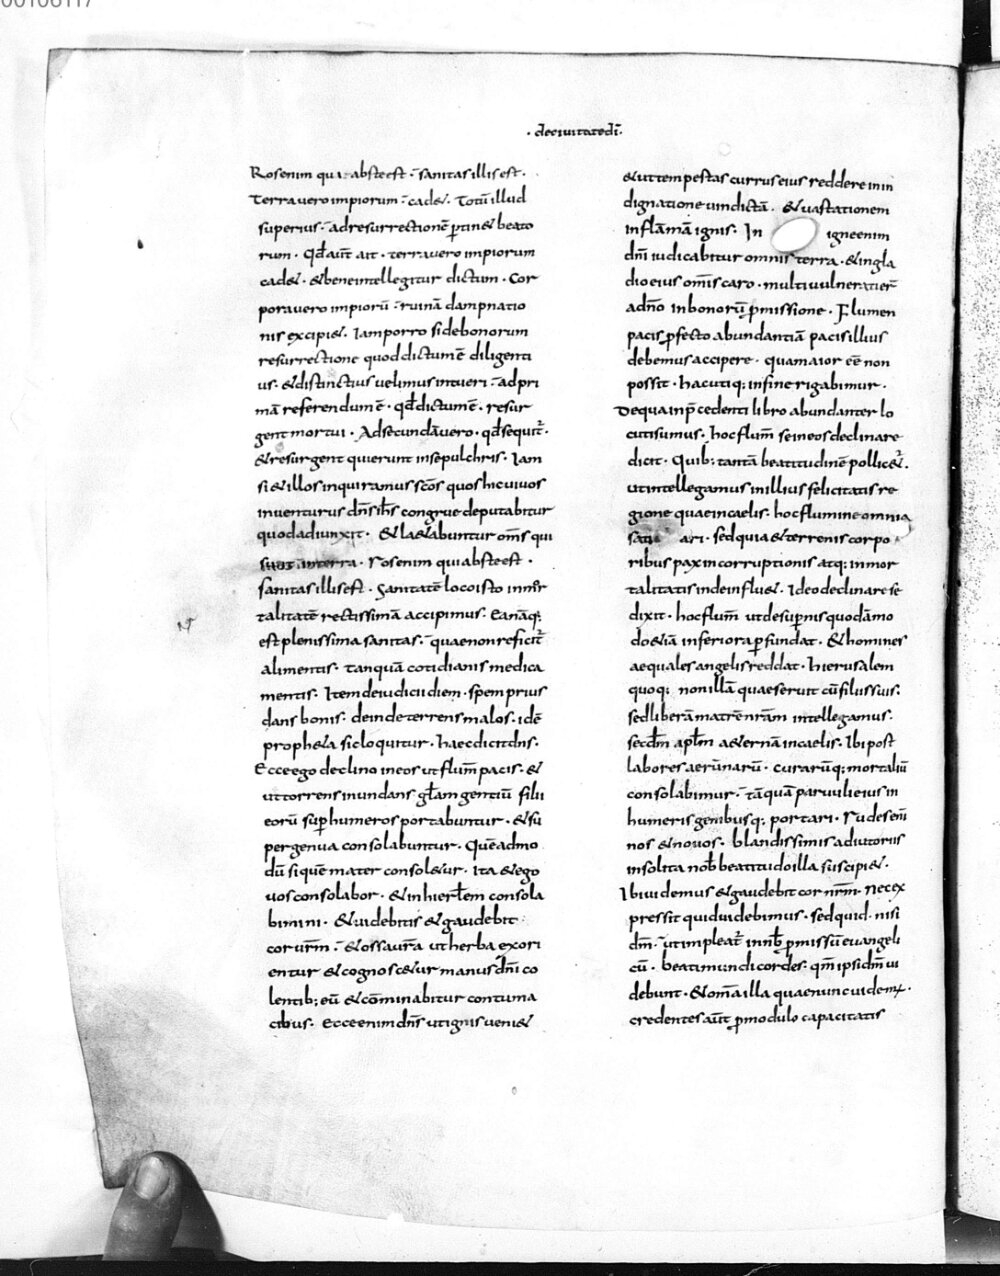 00106117
· deciuitatedī ·
Rosenim qui abste est · sanitas illis est ·
Terra uero impiorum · cadet · Totū illud
superius · ad resurrectionē ptinet beato
rum · Qd̄ aūt ait · terra uero impiorum
cadet · & bene intellegitur dictum · Cor
pora uero impiorū · ruinā dampnatio
nis excipiet · Iam porro si de bonorum
resurrectione quod dictum ē diligenti
us · & distinctius uelimus intueri · ad pri
mā referendum ē · qd̄ dictum ē · resur
gent mortui · Ad secundā uero · qd̄ sequit̄ ·
& resurgent qui erunt in sepulchris · Iam
si & illos inquiramus sc̄os quos hic uiuos
inuenturus dn̄s ih̄s congrue deputabitur
quod adiunxit · & laetabuntur om̄s qui
sunt in terra · rosenim qui abste est ·
sanitas illis est · Sanitatē loco isto inmor
talitatē rectissimā accipimus · Ea nāq;
est plenissima sanitas · quae non reficit̄
alimentis · tanquā cotidianis medica
mentis · Item de iudicii diem · spem prius
dans bonis · deinde terrens malos · idē
propheta sic loquitur · haec dicit dn̄s ·
Ecce ego declino in eos ut flum̄ pacis · &
ut torrens inundans glām gentiū filii
eorū sup humeros portabuntur · & su
per genua consolabuntur · Quē admo
dū si quē mater consoletur · Ita & ego
uos consolabor · & in hierlem̄ consola
bimini · & uidebitis & gaudebit
cor urm̄ · & ossa urā ut herba exori
entur & cognoscetur manus dn̄i co
lentib; eū & cōminabitur contuma
cibus · Ecce enim dn̄s ut ignis ueniet
& ut tempestas currus eius reddere in in
dignatione uindictā · & uastationem
in flāmā ignis · In igne enim
dn̄i iudicabitur omnis terra · & in gla
dio eius om̄is caro · multi uulnerati er̄
a dn̄o in bonorū pmissione · Flumen
pacis pfecto abundantiā pacis illius
debemus accipere · qua maior ēe non
possit · hac utiq; in fine rigabimur ·
De qua in p̄cedenti libro abundanter lo
cuti sumus · hoc flum̄ se in eos declinare
dicit · Quib; tantā beatitudinē pollicet̄ ·
ut intellegamus in illius felicitatis re
gione quae in caelis · hoc flumine omnia
sati ari · sed quia & terrenis corpo
ribus pax incorruptionis atq; inmor
talitatis inde influet · Ideo declinare se
dixit · hoc flum̄ ut de supnis quodāmo
do etiā inferiora pfundat · & homines
aequales angelis reddat · hierusalem
quoq; non illā quae seruit cū filiis suis ·
sed liberā matrē nrām intellegamus ·
secdm̄ aplm̄ aeternā in caelis · Ibi post
labores aerūnarū · curarūq; mortaliū
consolabimur · tāquā paruuli eius in
humeris genibusq; portari · rudes eni
nos & nouos · blandissimis adiutoriis
insolita nob̄ beatitudo illa suscipiet ·
Ibi uidemus & gaudebit cor nrm̄ · nec ex
pressit quid uidebimus · sed quid · nisi
dm̄ · ut impleat̄ in nob̄ pmissū euangeli
cū · beati mundi cordes · qm̄ ipsi dm̄ ui
debunt · & omā illa quae nunc uidemus ·
credentes aūt p modulo capacitatis